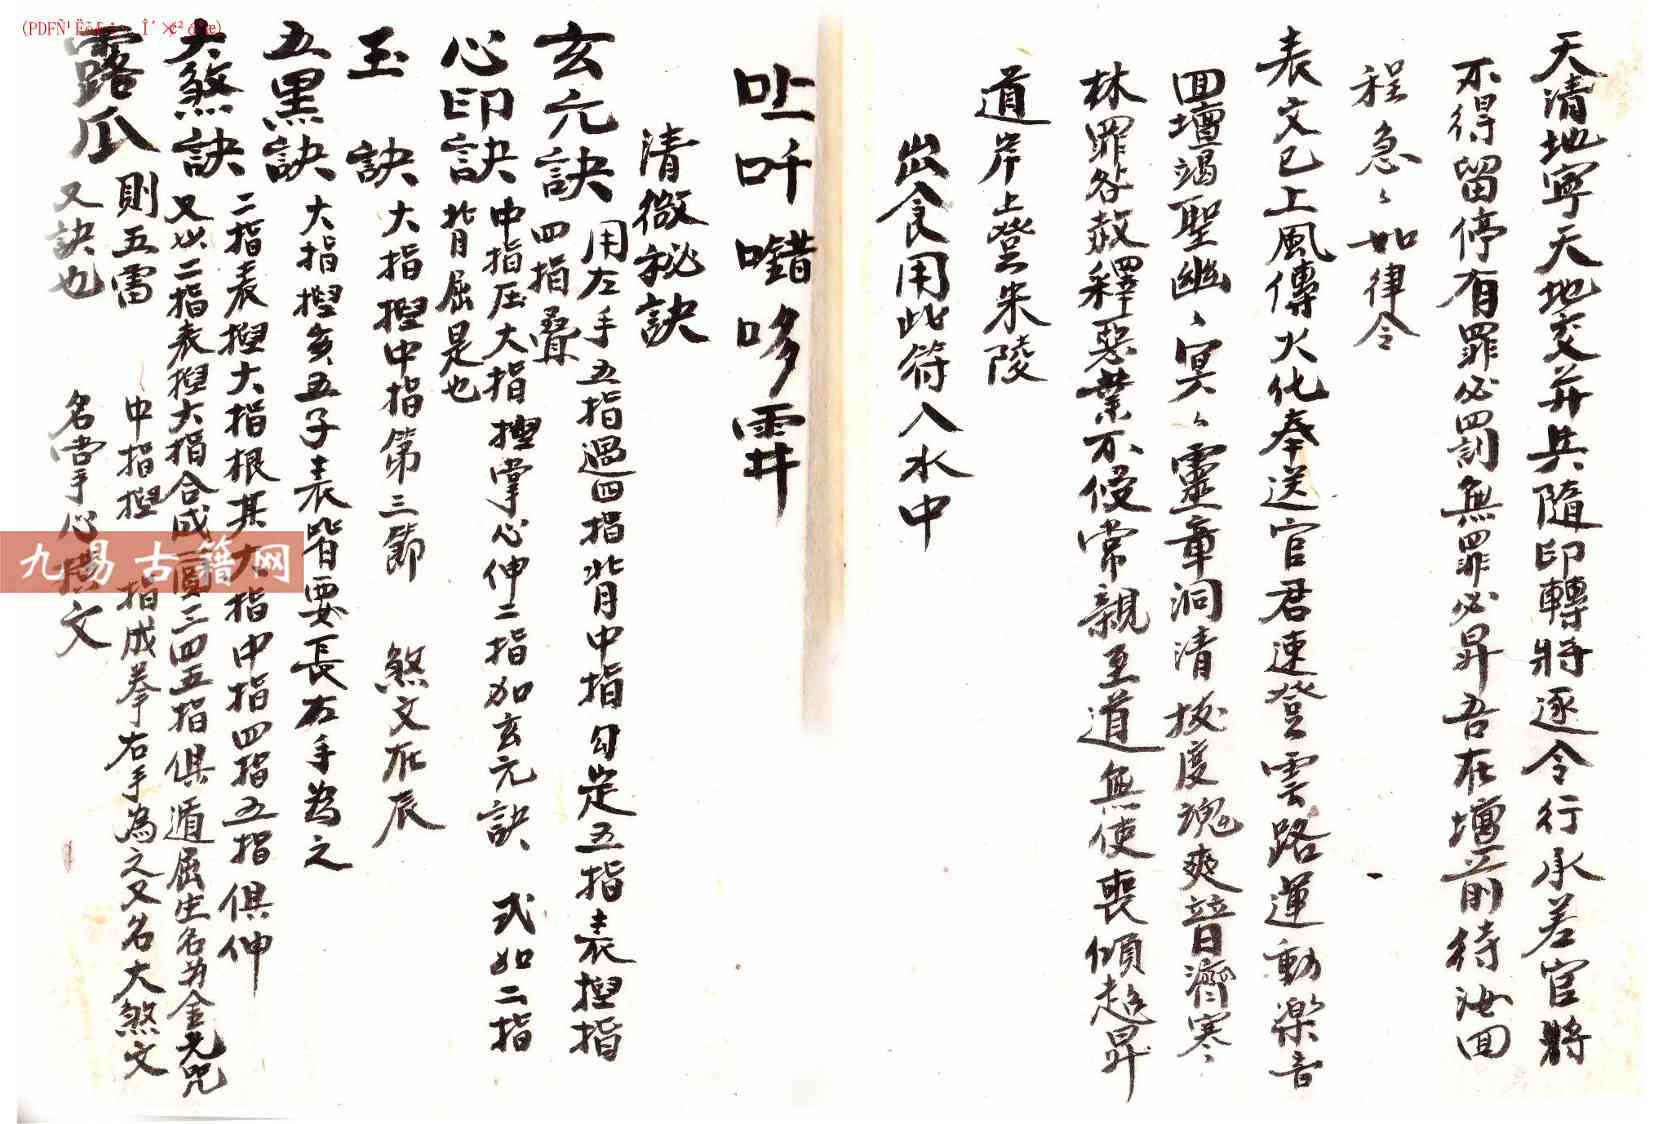 天清地寧天地交并兵隨印轉將逐令行承差官將
不得留停有罪必罰無罪必昇吾在壇前待汝回
程急〻如律令
表文已上風傳火化奉送官君速登雲路運動樂音
回壇竭聖幽〻冥〻靈章洞清拔度魂爽普濟寒
林罪咎赦釋惡業不侵常親至道無使喪傾超昇
道岸上登朱陵
出食用此符入水中
吐吽𡅏哆霘
清微秘訣
玄元訣 用左手五指過四指背中指勾定五指表揑指
四指疊
心印訣 中指压大指揑掌心伸二指如玄元訣 式如二指
背屈是也
玉 訣 大指揑中指第三節 煞文在辰
五黑訣 大指揑亥五子表皆要長右手為之
大煞訣 二指表揑大指根其大指中指四指五指俱伸
又以二指表揑大指合成圓三四五指俱遁屈生名为金光咒
露瓜 則五雷 中指揑 指成拳右手為之又名大煞文
又訣也 名掌手心横文
九易古籍网